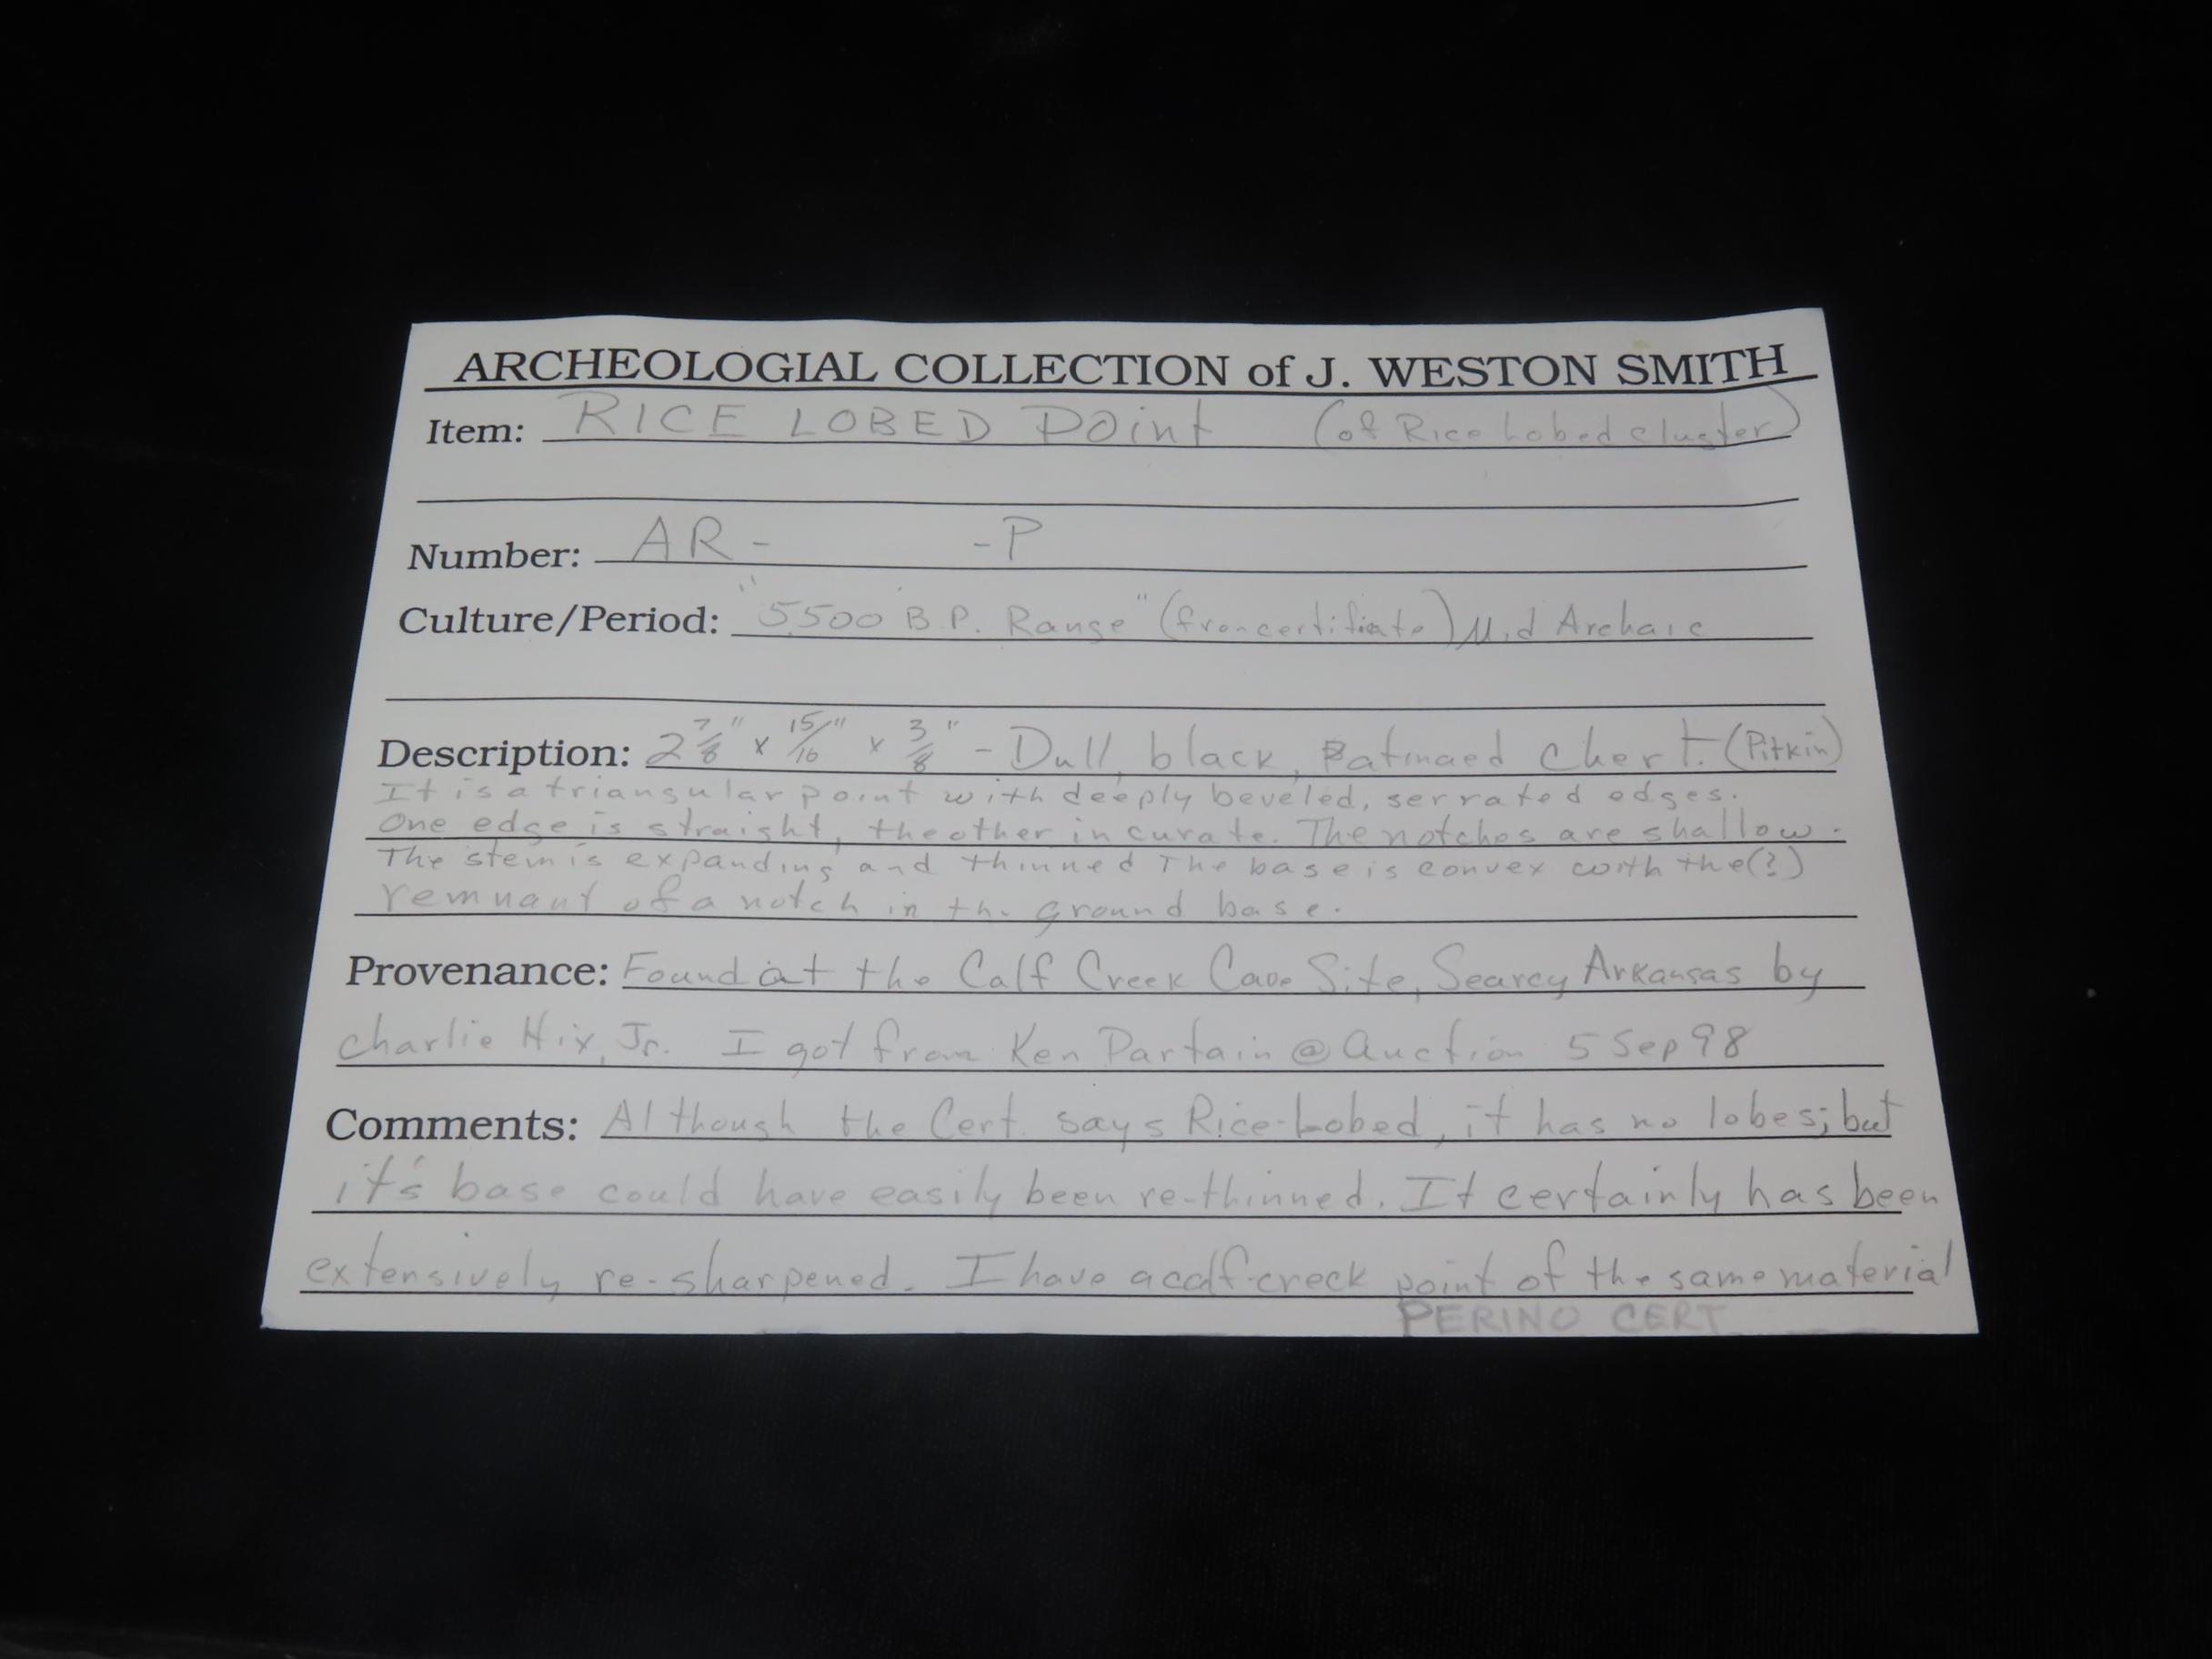 ARCHEOLOGIAL COLLECTION of J. WESTON SMITH
Item: RICE LOBED Point (of Rice Lobed cluster)
Number: AR- -P
Culture/Period: "5,500 B.P. Range" (from certifiate) Mid Archaic
Description: 2 7/8" x 15/16" x 3/8" - Dull, black, Patinaed chert. (Pitkin)
It is a triangular point with deeply beveled, serrated edges.
One edge is straight, the other incurate. The notches are shallow.
The stem is expanding and thinned The base is convex with the(?)
remnant of a notch in the ground base.
Provenance: Found at the Calf Creek Cave Site, Searcy Arkansas by
Charlie Hix, Jr. I got from Ken Partain @ Auction 5 Sep 98
Comments: Although the Cert. says Rice-Lobed, it has no lobes; but
it's base could have easily been re-thinned. It certainly has been
extensively re-sharpened. I have a calf-creek point of the same material
PERINO CERT